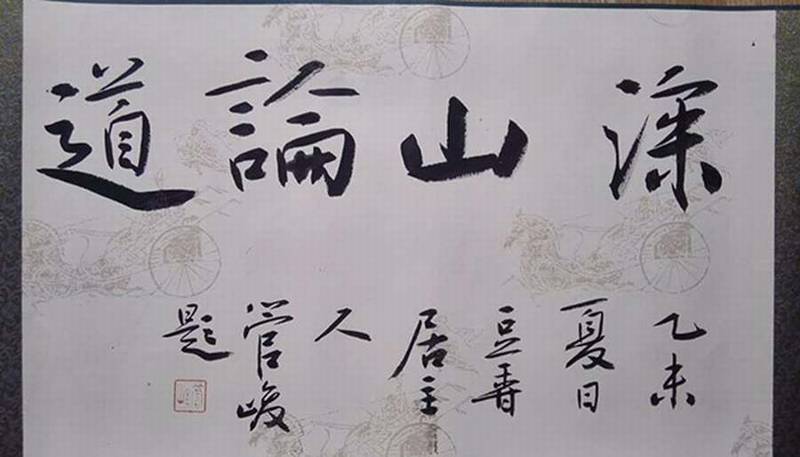 深山論道
乙未
夏日
豆香
居主
人
管峻
題